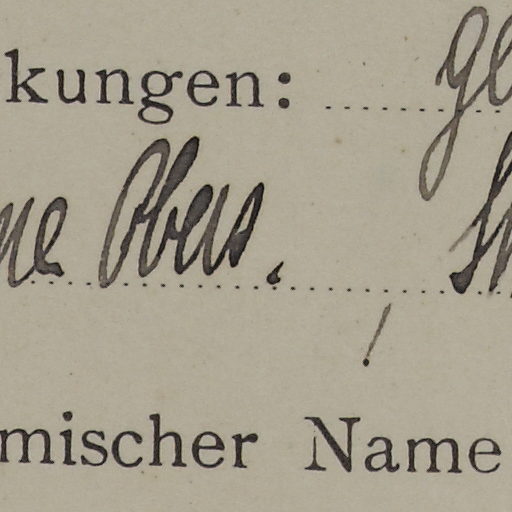 kungen: ge
ne Obers.
mischer Name